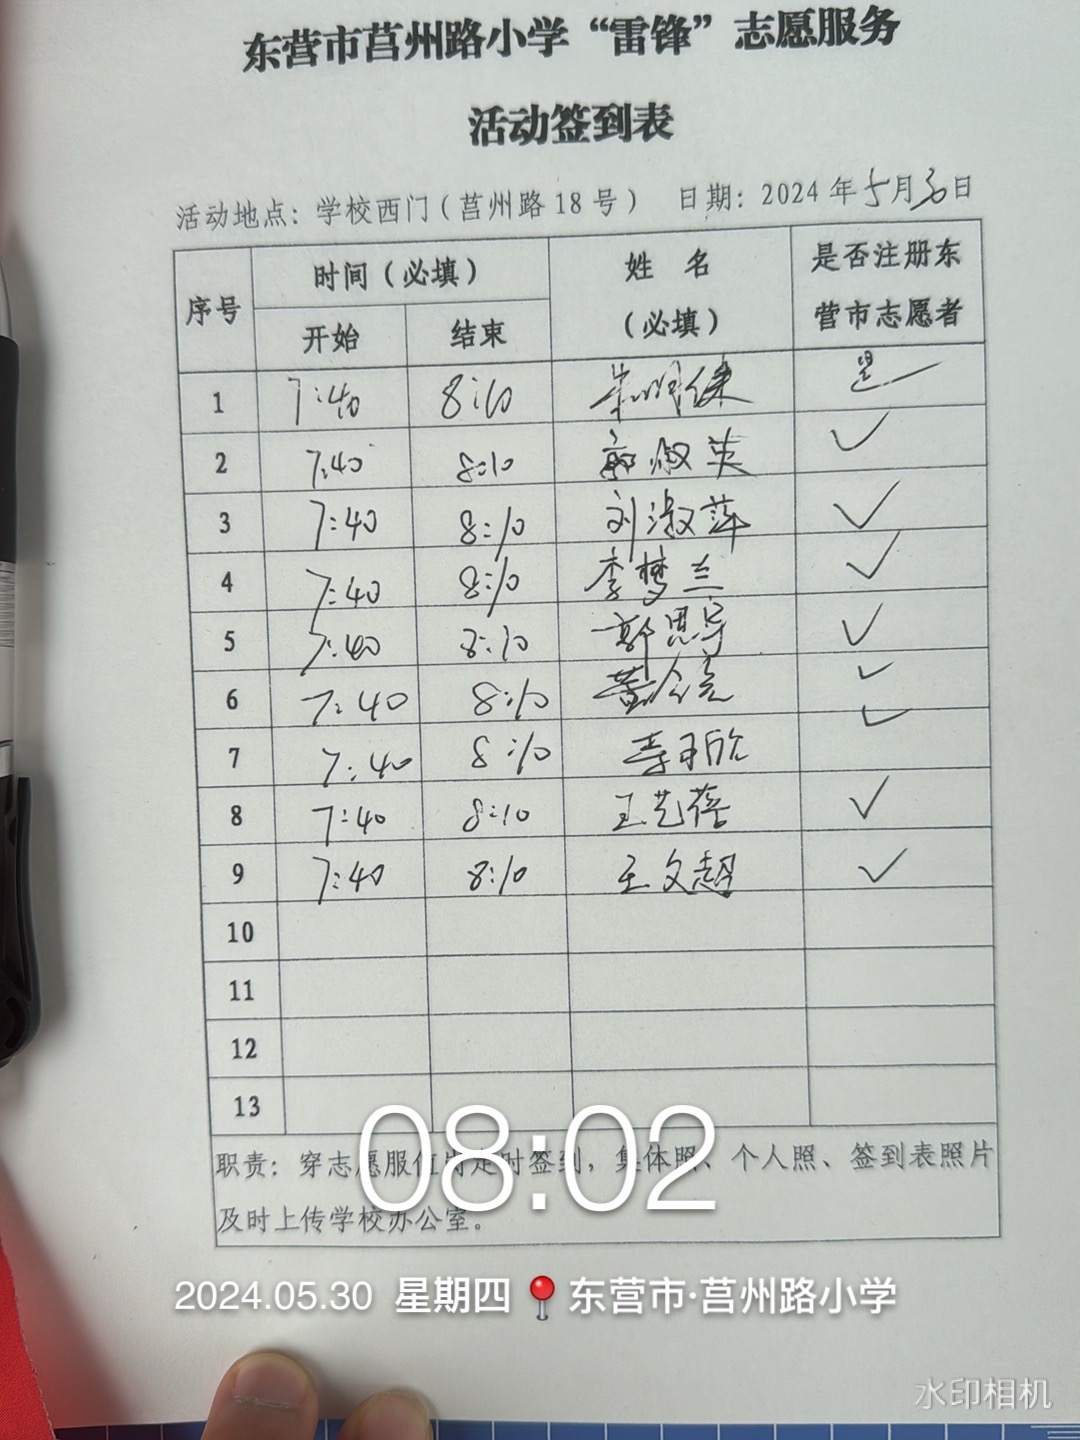 东营市莒州路小学“雷锋”志愿服务
活动签到表
活动地点：学校西门（莒州路18号） 日期：2024年5月30日
序号 时间（必填） 姓名（必填） 是否注册东营市志愿者
开始 结束
1 7:40 8:10 是
2 7:40 8:10 郭淑英 ✓
3 7:40 8:10 刘淑萍 ✓
4 7:40 8:10 李梦兰 ✓
5 7:40 8:10 郭思宇 ✓
6 7:40 8:10 ✓
7 7:40 8:10 ✓
8 7:40 8:10 王艺蓓 ✓
9 7:40 8:10 王文超 ✓
10
11
12
13
职责：穿志愿服值岗定时签到，集体照、个人照、签到表照片
及时上传学校办公室。
08:02
2024.05.30 星期四 东营市·莒州路小学
水印相机